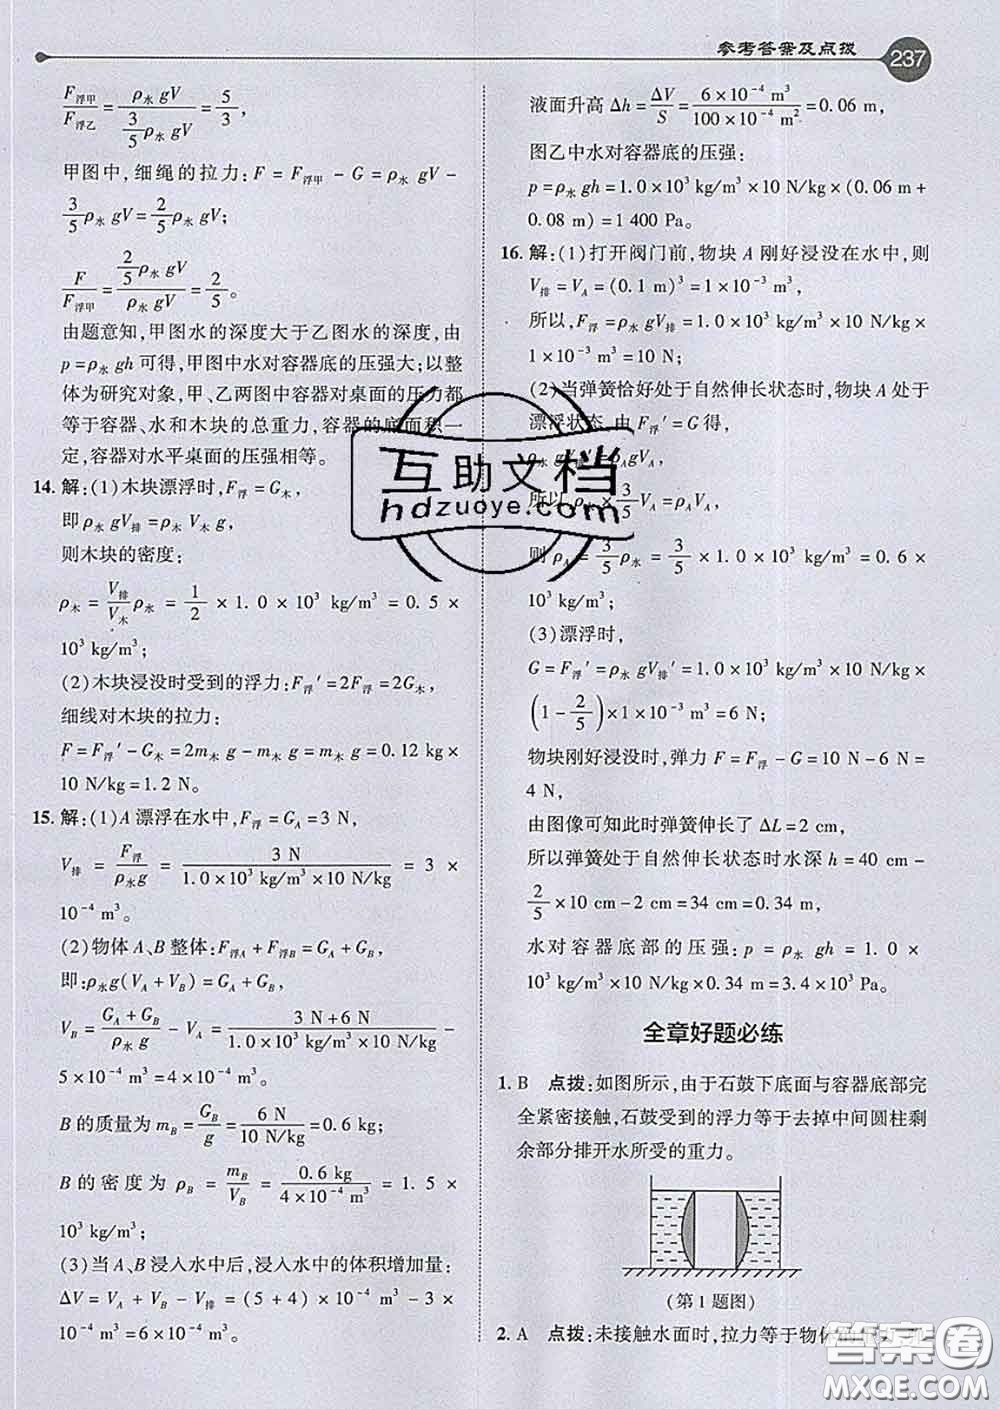 参考答案及点拨 237
F浮甲/F浮乙 = ρ水 gV / (3/5 ρ水 gV) = 5/3,
甲图中,细绳的拉力:F = F浮甲 - G = ρ水 gV -
3/5 ρ水 gV = 2/5 ρ水 gV;
F/F浮甲 = (2/5 ρ水 gV) / (ρ水 gV) = 2/5。
由题意知,甲图水的深度大于乙图水的深度,由
p = ρ水 gh 可得,甲图中水对容器底的压强大;以整
体为研究对象,甲、乙两图中容器对桌面的压力都
等于容器、水和木块的总重力,容器的底面积一
定,容器对水平桌面的压强相等。
14. 解:(1)木块漂浮时,F浮 = G木,
即 ρ水 gV排 = ρ木 V木 g,
则木块的密度:
ρ木 = V排/V木 ρ水 = 1/2 × 1.0 × 10³ kg/m³ = 0.5 ×
10³ kg/m³;
(2)木块浸没时受到的浮力:F浮′ = 2F浮 = 2G木,
细线对木块的拉力:
F = F浮′ - G木 = 2m木 g - m木 g = m木 g = 0.12 kg ×
10 N/kg = 1.2 N。
15. 解:(1)A 漂浮在水中,F浮 = GA = 3 N,
V排 = F浮/ρ水g = 3 N / (1.0 × 10³ kg/m³ × 10 N/kg) = 3 ×
10⁻⁴ m³。
(2)物体 A、B 整体:F浮A + F浮B = GA + GB,
即:ρ水g(VA + VB) = GA + GB,
VB = (GA + GB)/(ρ水 g) - VA = (3 N + 6 N)/(1.0 × 10³ kg/m³ × 10 N/kg) -
5 × 10⁻⁴ m³ = 4 × 10⁻⁴ m³。
B 的质量为 mB = GB/g = 6 N/(10 N/kg) = 0.6 kg,
B 的密度为 ρB = mB/VB = 0.6 kg/(4 × 10⁻⁴ m³) = 1.5 ×
10³ kg/m³;
(3)当 A、B 浸入水中后,浸入水中的体积增加量:
ΔV = VA + VB - V排 = (5 + 4) × 10⁻⁴ m³ - 3 ×
10⁻⁴ m³ = 6 × 10⁻⁴ m³;
液面升高 Δh = ΔV/S = (6 × 10⁻⁴ m³)/(100 × 10⁻⁴ m²) = 0.06 m,
图乙中水对容器底的压强:
p = ρ水 gh = 1.0 × 10³ kg/m³ × 10 N/kg × (0.06 m +
0.08 m) = 1 400 Pa。
16. 解:(1)打开阀门前,物块 A 刚好浸没在水中,则
V排 = VA = (0.1 m)³ = 1 × 10⁻³ m³,
所以,F浮 = ρ水 gV排 = 1.0 × 10³ kg/m³ × 10 N/kg ×
1 × 10⁻³ m³ = 10 N;
(2)当弹簧恰好处于自然伸长状态时,物块 A 处于
漂浮状态,由 F浮′ = G 得,
ρ水 gV排′ = ρA gVA,
所以 ρ水 × 3/5 VA = ρA VA,
则 ρA = 3/5 ρ水 = 3/5 × 1.0 × 10³ kg/m³ = 0.6 ×
10³ kg/m³;
(3)漂浮时,
G = F浮′ = ρ水 gV排′ = 1.0 × 10³ kg/m³ × 10 N/kg
× (1 - 2/5) × 1 × 10⁻³ m³ = 6 N;
物块刚好浸没时,弹力 F = F浮 - G = 10 N - 6 N =
4 N,
由图像可知此时弹簧伸长了 ΔL = 2 cm,
所以弹簧处于自然伸长状态时水深 h = 40 cm -
2/5 × 10 cm - 2 cm = 34 cm = 0.34 m,
水对容器底部的压强:p = ρ水 gh = 1.0 ×
10³ kg/m³ × 10 N/kg × 0.34 m = 3.4 × 10³ Pa。
全章好题必练
1. B 点拨:如图所示,由于石鼓下底面与容器底部完
全紧密接触,石鼓受到的浮力等于去掉中间圆柱剩
余部分排开水所受的重力。
(第 1 题图)
2. A 点拨:未接触水面时,拉力等于物体
互助文档
hdzuoye.com
答案卷
MXQE.COM